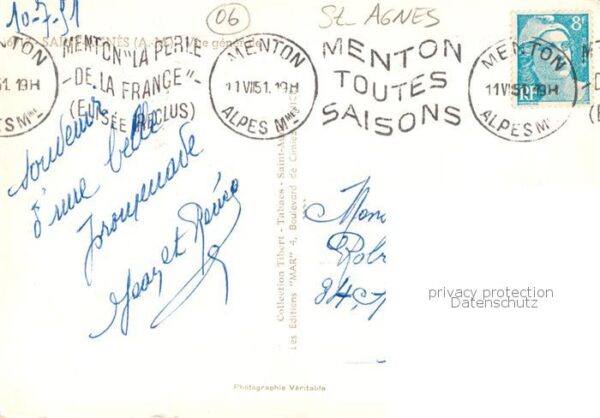 10-7-51
06
St AGNES
SAINT-AGNÈS (A.-M.) - Vue générale
MENTON
11 VII 51. 19H
ALPES Mmes
MENTON "LA PERLE
-DE LA FRANCE"-
(ELISÉE RECLUS)
MENTON
11 VII 51. 19H
ALPES Mmes
MENTON
TOUTES
SAISONS
MENTON
11 VII 51. 19H
ALPES Mmes
8F
RF
Souvenir
d'une belle
promenade
Collection Tibert - Tabacs - Saint-A
Les Editions "MAR" 4, Boulevard de Cimiez
Photographie Véritable
privacy protection
Datenschutz